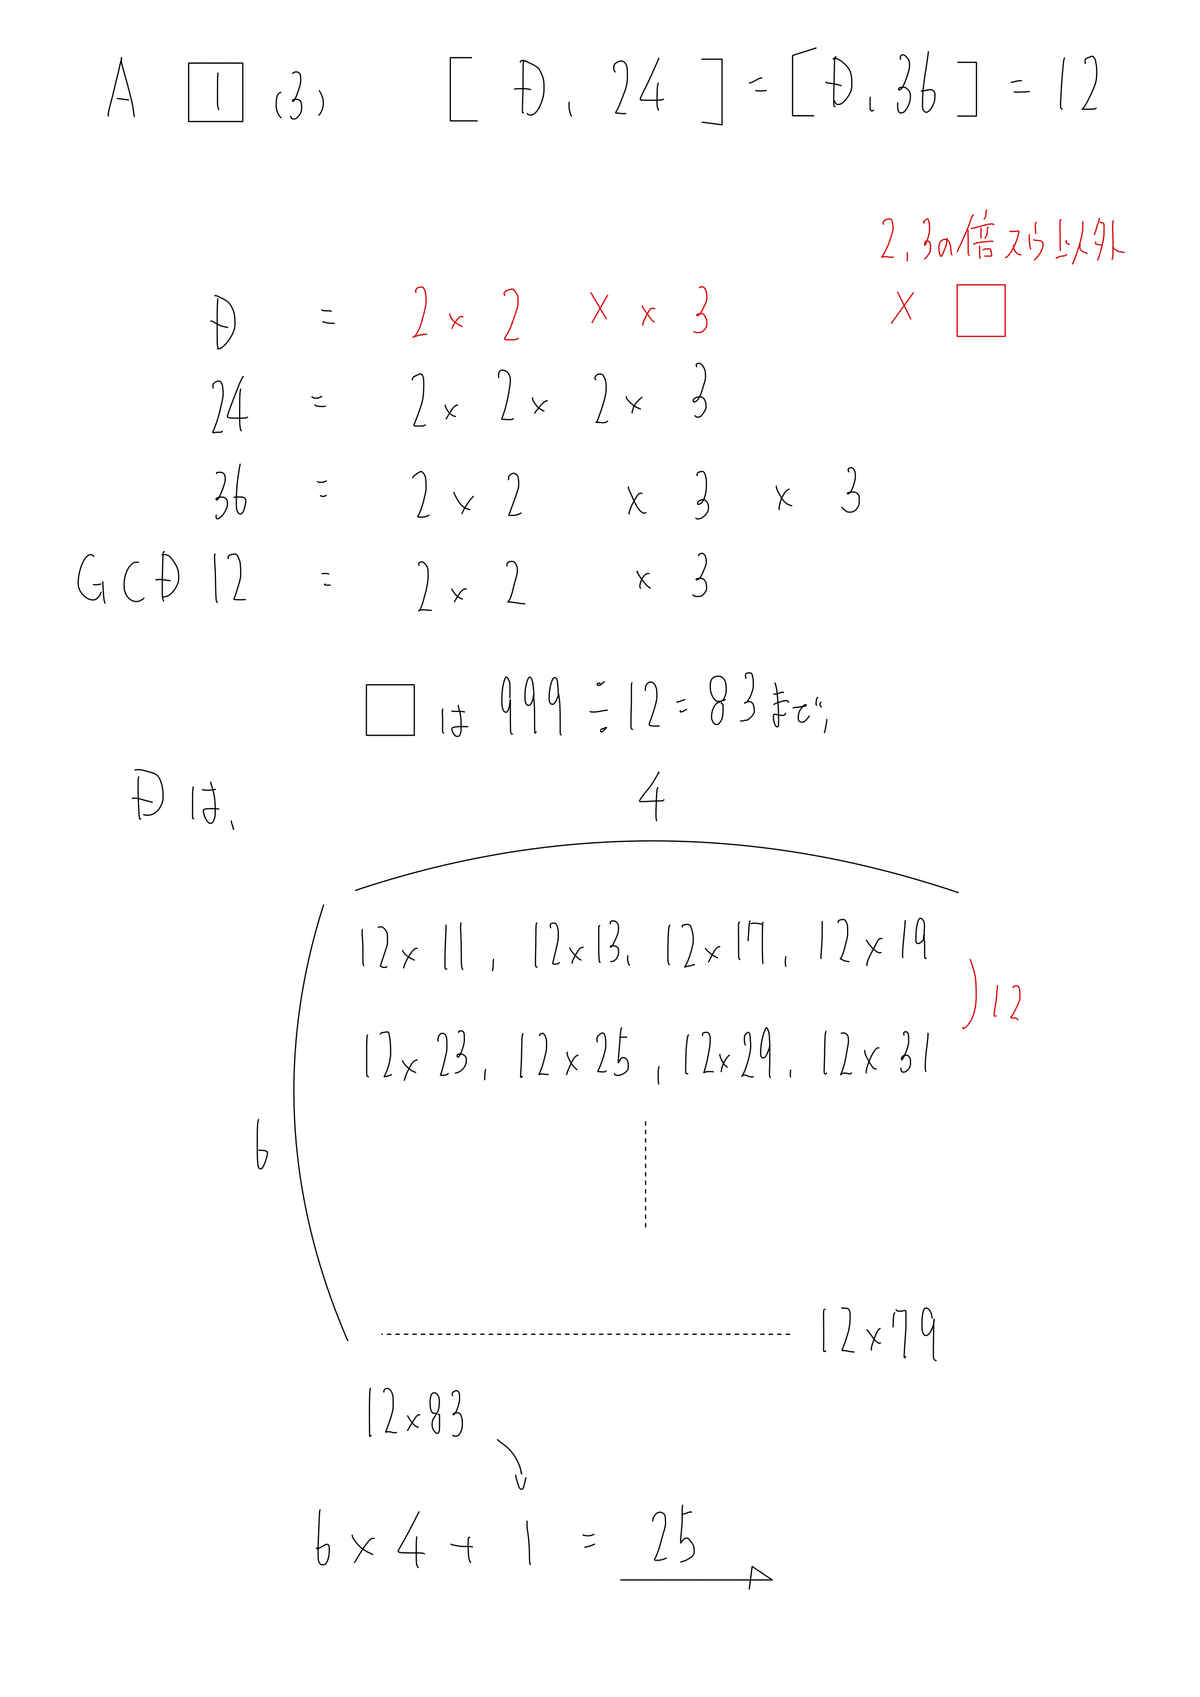 A 1 (3) [ D, 24 ] = [ D, 36 ] = 12
2, 3の倍スウ以外
D = 2 × 2 × × 3 × □
24 = 2 × 2 × 2 × 3
36 = 2 × 2 × 3 × 3
GCD 12 = 2 × 2 × 3
□ は 999 ÷ 12 = 83 まで,
Dは、
4
12×11, 12×13, 12×17, 12×19
)12
12×23, 12×25, 12×29, 12×31
6
12×79
12×83
6 × 4 + 1 = 25